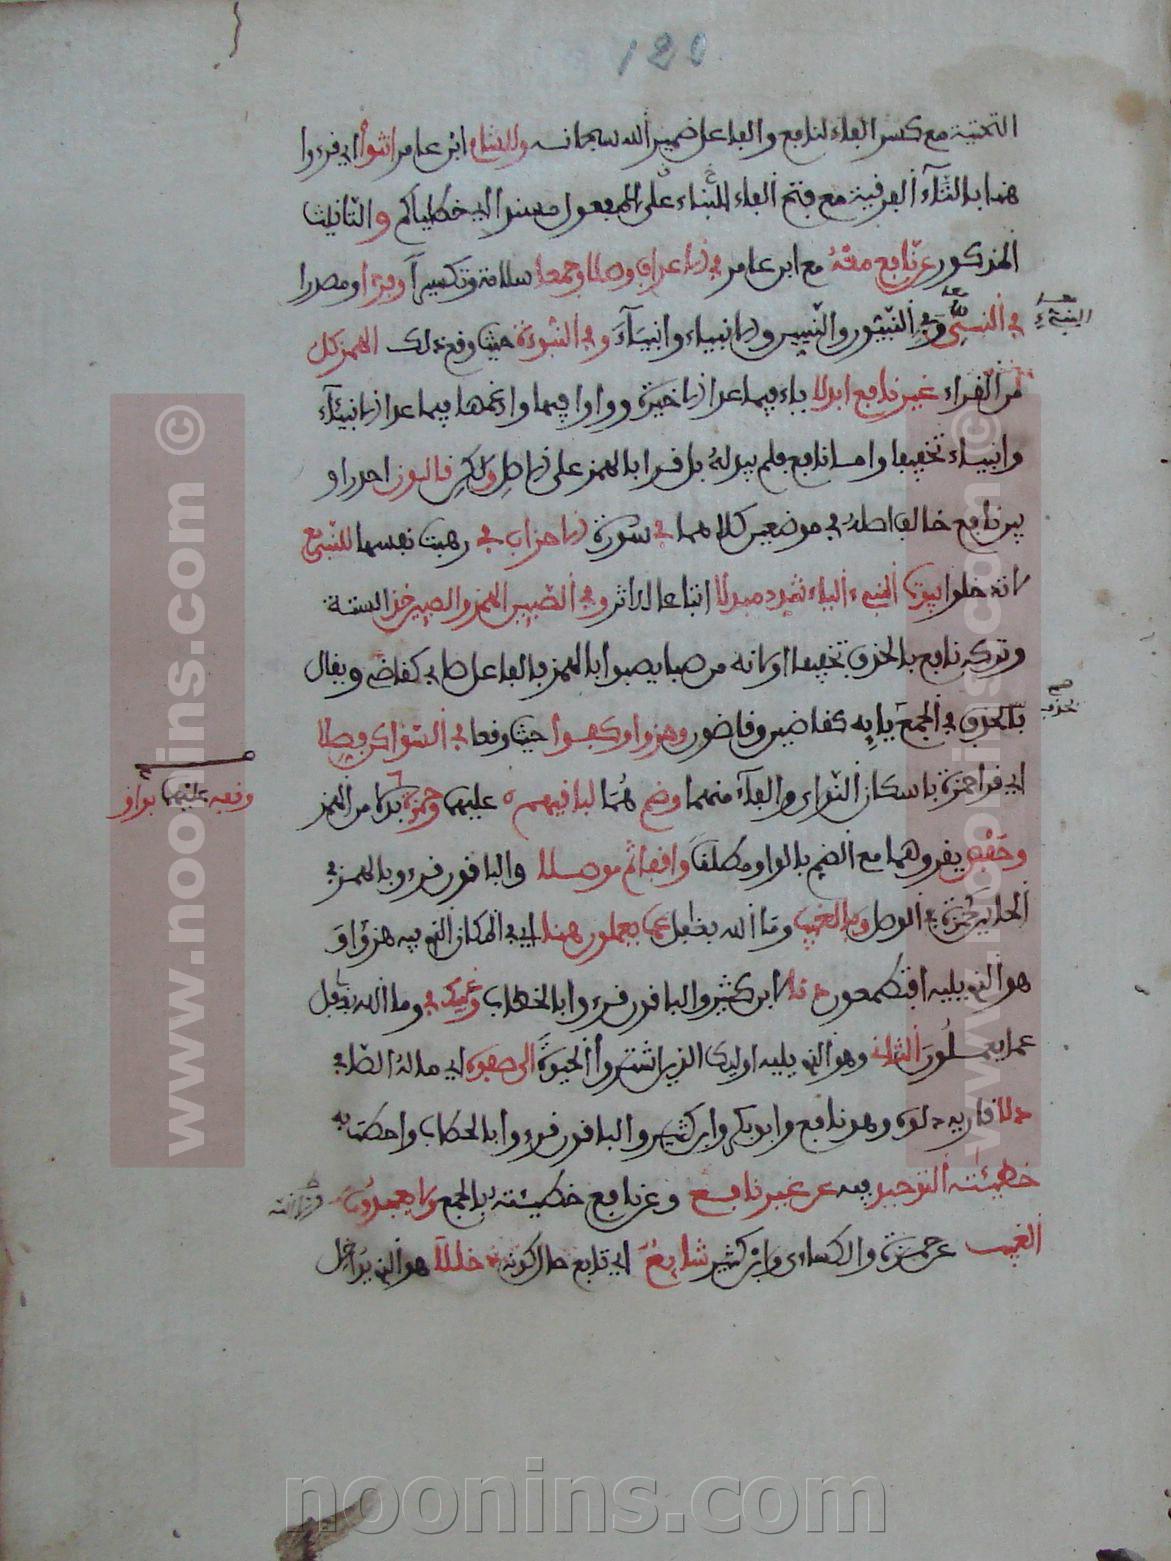 120
التحتية مع كسر الفاء لنافع والفاعل ضمير الله سبحانه وللشام ابن عامر انثوا اي قرءوا
هنا بالتاء الفوقية مع فتح الفاء للبناء على المفعول مسندا الى خطاياكم والتانيث
المذكور عن نافع معه مع ابن عامر في الاعراف وصلا وجمعا سلامة وتكسيرا وفردا ومصدرا
في النبيء وفي النبيئون والنبيين والانبياء وانبياء وفي النبوءة حيث وقع ذلك الهمز كل
من القراء غير نافع ابدلا ياء فيما عدا الاخيرة وواوا فيها وادغمها فيما عدا الانبئاء
وانبياء تخفيفا واما نافع فلم يبدله بل قرا بالهمز على الاصل ولكن قالون احد راو
يي نافع خالف اصله في موضعين كلاهما في سورة الاحزاب في وهبت نفسها للنبي مع
لا تدخلوا بيوت النبيء الياء شدد مبدلا اتباعا للاثر وفي الصبين الهمز والصبيون خذ الستة
وتركه نافع بالحذف تخفيفا او لانه من صبا يصبوا بلا همز فالفاعل صابي كقاضي ويقال
بالحذف في الجمع يايه كقاضين وقاضون وهزوا وكفوا حيث وقعا في السواكن فصلا
اي قرا حمزة باسكان الزاي والفاء منهما وضم هما لباقيهم عليهما وحمزة بدلا من الهمز
وحفص يقروهما مع الضم بالواو مطلقا واقفا ثم موصلا والباقون قرءو بالهمز في
الحالين حمزة في الوصل وبالغيب وما الله بغافل عما يعملون هنا اي في المكان الذي فيه هزؤا و
هو الذي يليه افتطمعون دنا لابن كثير والباقون قرءوا بالخطاب وغيبك في وما الله بغافل
عما يعملون الثان وهو الذي يليه اوليك الذين اشتروا الحيوة الى صفوه اي ماله الصافي
دلا قاريه دلوه وهو نافع وابو بكر وابن كثير والباقون قرءوا بالخطاب واحطت به
خطيئته التوحيد فيه عن غير نافع وعن نافع خطيئته بالجمع ولا يعبدون
الغيب عن حمزة والكساءي وابن كثير شايع اي تابع حال كونه دخللا هو الذي يداخل
النبيء
وقفه عليهما بواو
www.noonins.com ©
www.noonins.com ©
noonins.com